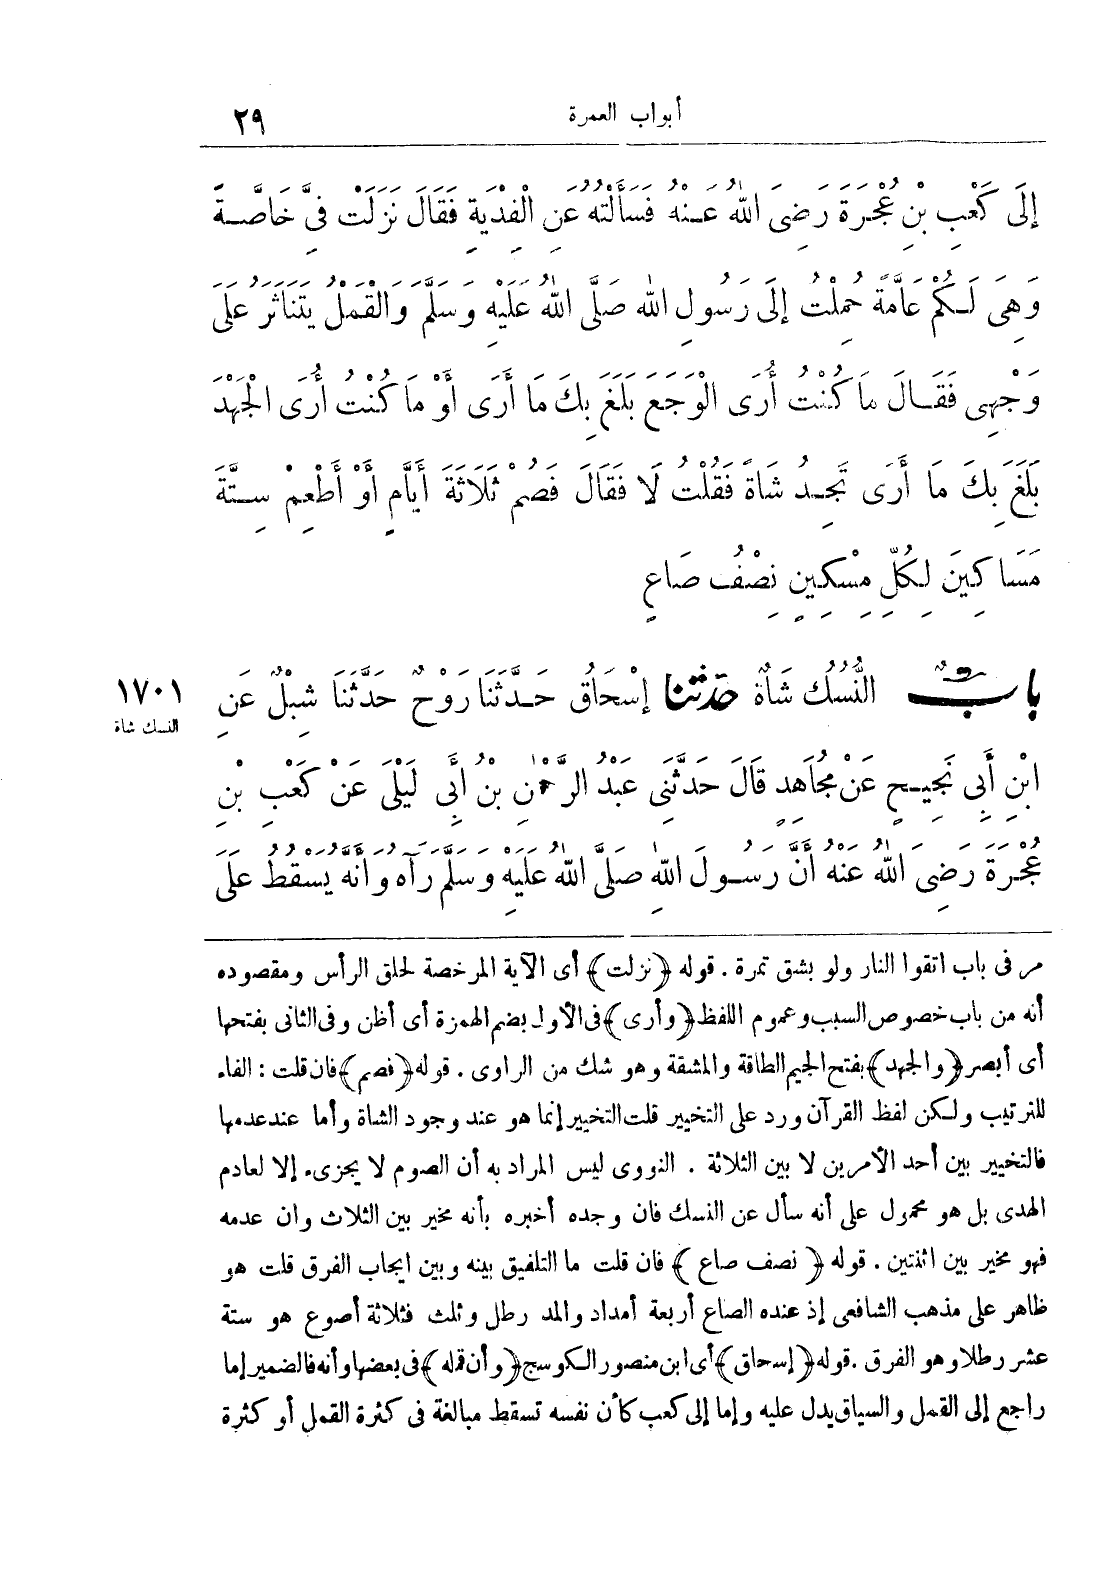 أبواب العمرة
٢٩
إِلَى كَعْبِ بْنِ عُجْرَةَ رَضِىَ اللهُ عَنْهُ فَسَأَلْتُهُ عَنِ الْفِدْيَةِ فَقَالَ نَزَلَتْ فِىَّ خَاصَّةً
وَهِىَ لَكُمْ عَامَّةً حُمِلْتُ إِلَى رَسُولِ اللهِ صَلَّى اللهُ عَلَيْهِ وَسَلَّمَ وَالْقَمْلُ يَتَنَاثَرُ عَلَى
وَجْهِى فَقَالَ مَا كُنْتُ أُرَى الْوَجَعَ بَلَغَ بِكَ مَا أَرَى أَوْ مَا كُنْتُ أُرَى الْجَهْدَ
بَلَغَ بِكَ مَا أَرَى تَجِدُ شَاةً فَقُلْتُ لَا فَقَالَ فَصُمْ ثَلَاثَةَ أَيَّامٍ أَوْ أَطْعِمْ سِتَّةَ
مَسَاكِينَ لِكُلِّ مِسْكِينٍ نِصْفُ صَاعٍ
بَابٌ النُّسُكُ شَاةٌ حَدَّثَنَا إِسْحَاقُ حَدَّثَنَا رَوْحٌ حَدَّثَنَا شِبْلٌ عَنِ
١٧٠١
النسك شاة
ابْنِ أَبِى نَجِيحٍ عَنْ مُجَاهِدٍ قَالَ حَدَّثَنِى عَبْدُ الرَّحْمٰنِ بْنُ أَبِى لَيْلَى عَنْ كَعْبِ بْنِ
عُجْرَةَ رَضِىَ اللهُ عَنْهُ أَنَّ رَسُولَ اللهِ صَلَّى اللهُ عَلَيْهِ وَسَلَّمَ رَآهُ وَأَنَّهُ يَسْقُطُ عَلَى
مر فى باب اتقوا النار ولو بشق تمرة . قوله ﴿نزلت﴾ أى الآية المرخصة لحلق الرأس ومقصوده
أنه من باب خصوص السبب وعموم اللفظ ﴿وأرى﴾ فى الأول بضم الهمزة أى أظن وفى الثانى بفتحها
أى أبصر ﴿والجهد﴾ بفتح الجيم الطاقة والمشقة وهو شك من الراوى . قوله ﴿فصم﴾ فان قلت : الفاء
للترتيب ولكن لفظ القرآن ورد على التخيير قلت التخيير إنما هو عند وجود الشاة وأما عند عدمها
فالتخيير بين أحد الأمرين لا بين الثلاثة . النووى ليس المراد به أن الصوم لا يجزىء إلا لعادم
الهدى بل هو محمول على أنه سأل عن النسك فان وجده أخبره بأنه مخير بين الثلاث وان عدمه
فهو مخير بين اثنتين . قوله ﴿نصف صاع﴾ فان قلت ما التلفيق بينه وبين ايجاب الفرق قلت هو
ظاهر على مذهب الشافعى إذ عنده الصاع أربعة أمداد والمد رطل وثلث فثلاثة أصوع هو ستة
عشر رطلا وهو الفرق . قوله ﴿إسحاق﴾ أى ابن منصور الكوسج ﴿وأن قمله﴾ فى بعضها وأنه فالضمير إما
راجع إلى القمل والسياق يدل عليه وإما إلى كعب كأن نفسه تسقط مبالغة فى كثرة القمل أو كثرة